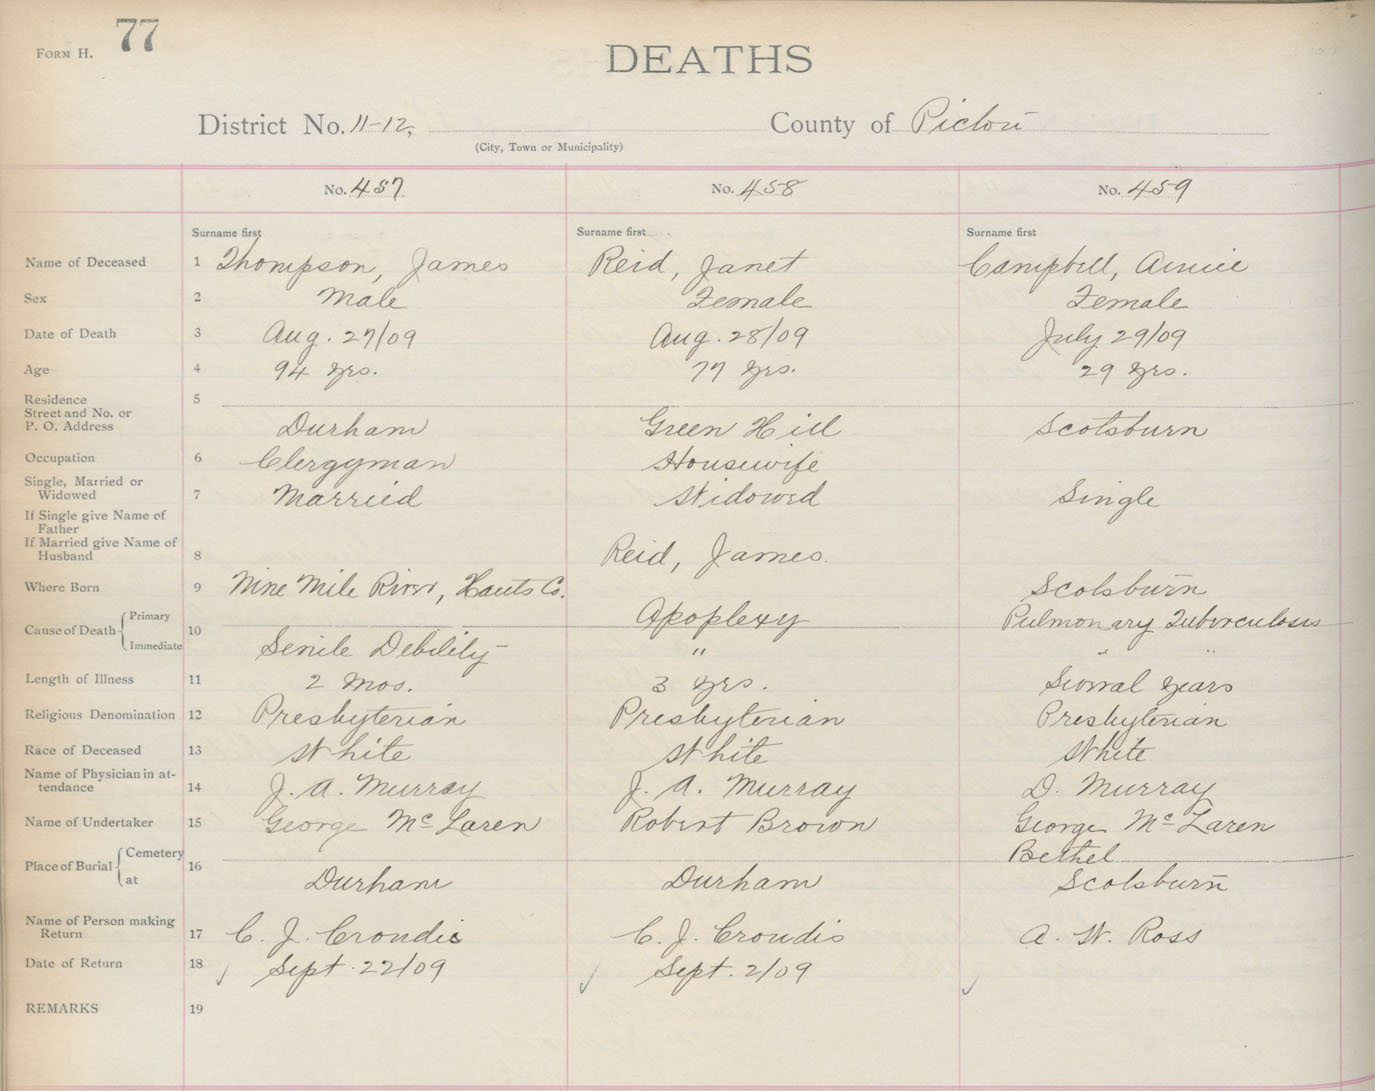 FORM H. 77
DEATHS
District No. 11-12, County of Pictou
(City, Town or Municipality)
No. 457 No. 458 No. 459
Surname first Surname first Surname first
Name of Deceased 1 Thompson, James Reid, Janet Campbell, Annie
Sex 2 Male Female Female
Date of Death 3 Aug. 27/09 Aug. 28/09 July 29/09
Age 4 94 yrs. 77 yrs. 29 yrs.
Residence 5
Street and No. or
P. O. Address Durham Green Hill Scotsburn
Occupation 6 Clergyman Housewife
Single, Married or
Widowed 7 Married Widowed Single
If Single give Name of
Father
If Married give Name of
Husband 8 Reid, James.
Where Born 9 Nine Mile River, Hants Co. Scotsburn
Cause of Death Primary Apoplexy Pulmonary Tuberculosis
10
Immediate Senile Debility " " "
Length of Illness 11 2 mos. 3 yrs. Several years
Religious Denomination 12 Presbyterian Presbyterian Presbyterian
Race of Deceased 13 White White White
Name of Physician in at-
tendance 14 J. A. Murray J. A. Murray D. Murray
Name of Undertaker 15 George McLaren Robert Brown George McLaren
Place of Burial Cemetery 16 Bethel
at Durham Durham Scotsburn
Name of Person making
Return 17 C. J. Crowdis C. J. Crowdis A. W. Ross
Date of Return 18 Sept. 22/09 Sept. 2/09
REMARKS 19